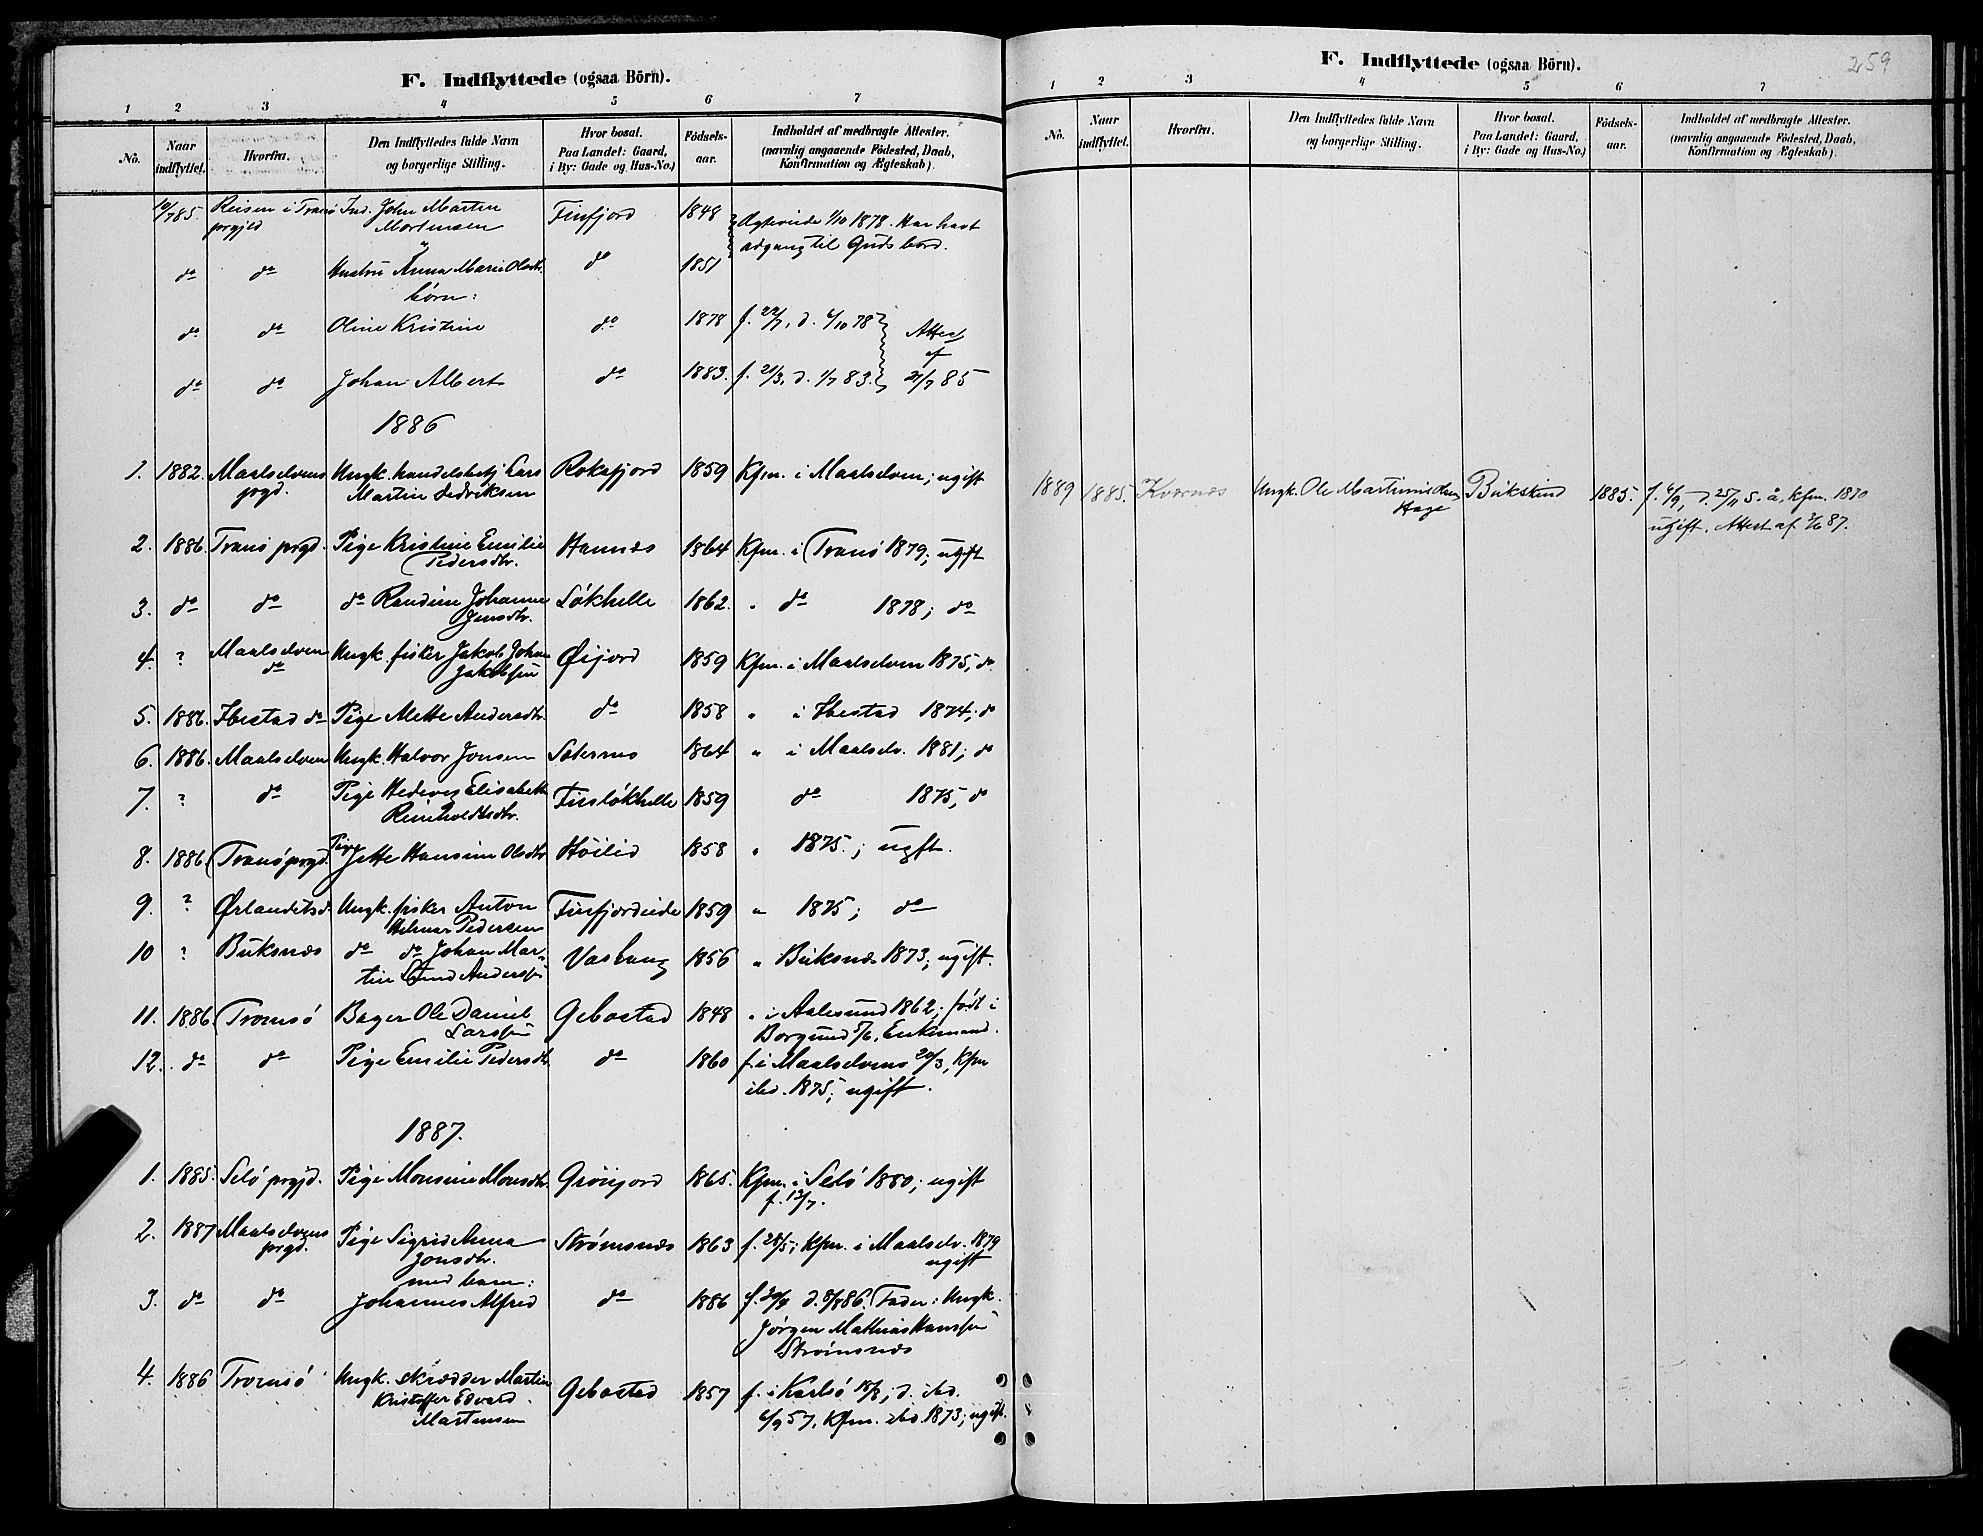 F. Indflyttede (ogsaa Börn).
1 2 3 4 5 6 7
No. Naar indflyttet. Hvorfra. Den Indflyttedes fulde Navn og borgerlige Stilling. Hvor bosat. Paa Landet: Gaard, i By: Gade og Hus-No.) Födsels-aar. Indholdet af medbragte Attester. (navnlig angaaende Födested, Daab, Konfirmation og Ægteskab).
10/7 85. Reisen i Tranö Ind. John Martin Finfjord 1848 Ægteviede 1/10 1878. Har havt
prgjld Mortensen adgang til Guds bord.
do do Hustru Anna Marie Olsdtr. do 1851
börn:
do do Oline Kristine do 1878 f. 22/7, d. 6/10 78 Attest
af
do do Johan Albert do 1883. f. 21/3, d. 1/7 83. 21/7 85
1886
1. 1882. Maalselvens Ungk. handelsbetj Lars Roksfjord 1859 Kfm. i Maalselven; ugift
prgd. Martin Fredriksen
2. 1886. Tranö prgd. Pige Kristine Emilie Hannæs 1864 Kfm. i Tranö 1879; ugift
Pedersdtr.
3. do do do Randine Johanne Løkhelle 1862. " do 1878; do
Jensdtr.
4. ? Maalselven Ungk. fisker Jakob Johan Øijord 1859 Kfm. i Maalselven 1875; do
do Jakobsen
5. 1886. Ibestad do Pige Mette Andersdtr. do 1858 " i Ibestad 1874; do
6. 1886. Maalselven Ungk. Halvor Jonsen 1864 " i Maalselv. 1881; do
7. ? do Pige Hedevig Elisabeth Finsløkhelle 1859 do 1875; do
Reinholdtsdtr.
8. 1886 Tranö prgd. Pige Jette Hansine Olsdtr. Høilid 1858 " 1875.; ugft.
9. ? Ungk. fisker Anton Finfjordeide 1859 " 1875; do
Hilmar Pedersen
10 ? Buksnæs do do Johan Mar- 1856 " Buksnæs 1873; ugift.
tin Lund Andersen
11. 1886 Tromsö Bager Ole Daniel Gebostad 1848 " i Aalesund 1862; født i
Larssen Borgund 5/6, Enkemand.
12. do do Pige Emilie Pedersdtr. do 1860 f. i Maalselvens 20/3, Kfm
ibd. 1875; ugift.
1887.
1. 1885. Selö prgjd. Pige Monsine Monsdtr. Grönjord 1865. Kfm. i Selö 1880; ugift
f. 13/7.
2. 1887 Maalselvens Pige Sigrid Anna Strømsnæs 1863 f. 28/5; Kfm. i Maalselv. 1879
prgd. Jonsdtr. ugift
med barn:
3. do do Johannes Alfred do 1886 Fader: Ungk.
Jørgen Mathias Hanssen
Strømsnæs
4. 1886 Tromsö Ungk. skrædder Martin Gebostad 1857 f. i Karlsö 18/8; d. ibd.
Kristoffer Edvard 6/9 57, Kfm. ibd. 1873; ugift.
Martensen
F. Indflyttede (ogsaa Börn).
259
1 2 3 4 5 6 7
No. Naar indflyttet. Hvorfra. Den Indflyttedes fulde Navn og borgerlige Stilling. Hvor bosat. Paa Landet: Gaard, i By: Gade og Hus-No.) Födsels-aar. Indholdet af medbragte Attester. (navnlig angaaende Födested, Daab, Konfirmation og Ægteskab).
1889 1885. Kværnæs Ungk. Ole Martinus Olsen Bukskind 1885. f. 6/9, d. 25/11 s. å, kfm. 1870
Hage ugift. Attest af 87.